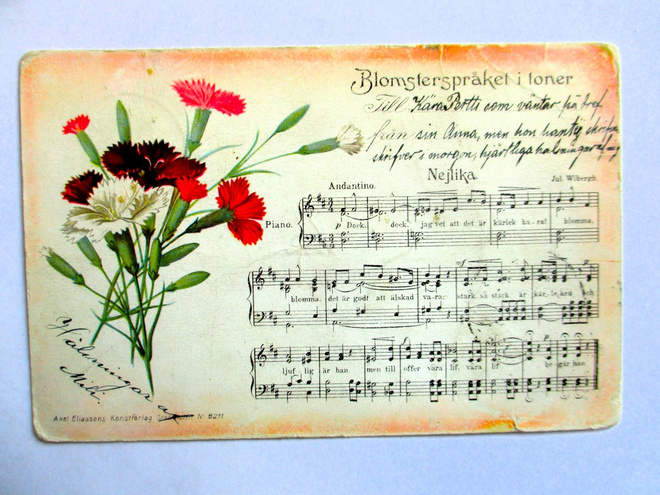 Blomsterspråket i toner
Till Kära Pertti som väntar på bref
från sin Anna, men hon
skrifver i morgon, hjärtliga hälsningar af mig
Nejlika.
Jul. Wibergh.
Andantino.
Piano.
p Dock, dock, jag vet att det är kärlek bara! blomma,
blomma, det är godt att älskad vara: stark, så stark är kärleken och
ljuflig är han men till offer våra lif, våra lif begär han.
Hälsningar
af
Axel Eliassons Konstförlag Stockholm Nº 8211